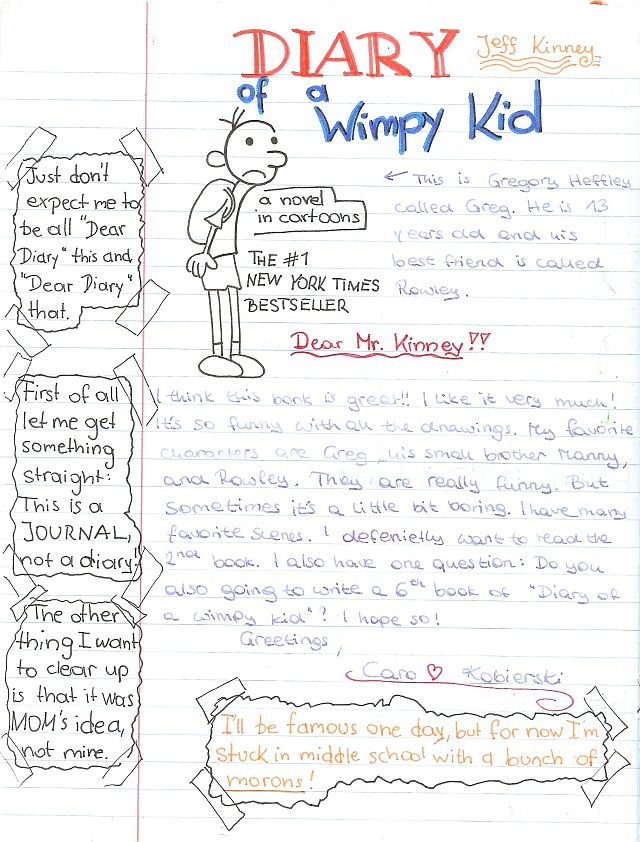 DIARY
of a
Wimpy Kid
Jeff Kinney
Just don't
expect me to
be all "Dear
Diary" this and
"Dear Diary"
that.
a novel
in cartoons
THE #1
NEW YORK TIMES
BESTSELLER
← This is Gregory Heffley
called Greg. He is 13
years old and his
best friend is called
Rowley.
Dear Mr. Kinney!!
First of all
let me get
something
straight:
This is a
JOURNAL,
not a diary!
I think this book is great!! I like it very much!
It's so funny with all the drawings. My favorite
characters are Greg, his small brother Manny,
and Rowley. They are really funny. But
sometimes it's a little bit boring. I have many
favorite scenes. I defenietly want to read the
2nd book. I also have one question: Do you
also going to write a 6th book of "Diary of
a wimpy kid"? I hope so!
Greetings,
Caro ♡ Kobierski
The other
thing I want
to clear up
is that it was
MOM's idea,
not mine.
I'll be famous one day, but for now I'm
stuck in middle school with a bunch of
morons!